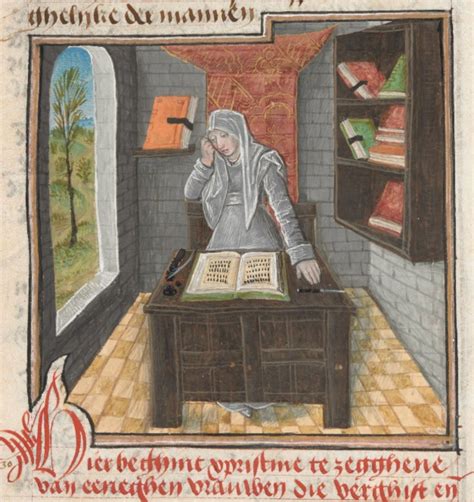 ghelyke de mannen
Hier beghint xpristine te zegghene
van eeneghen vrauwen die verghist en